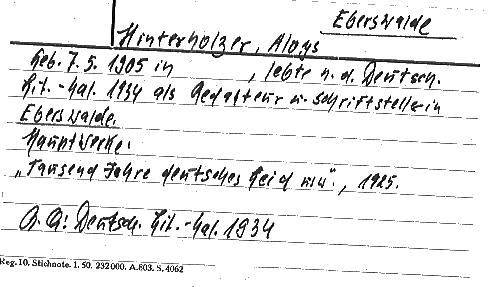 Eberswalde
Hinterholzer, Aloys
Geb. 7. 5. 1905 in , lebte n. d. Deutsch.
Lit.-Kal. 1934 als Redakteur u. Schriftsteller in
Eberswalde.
Hauptwerke:
„Tausend Jahre deutsches Leid", 1925.
O. A: Deutsch. Lit.-Kal. 1934
Reg. 10. Stichnote. 1. 50. 232000. A.803. S. 4062